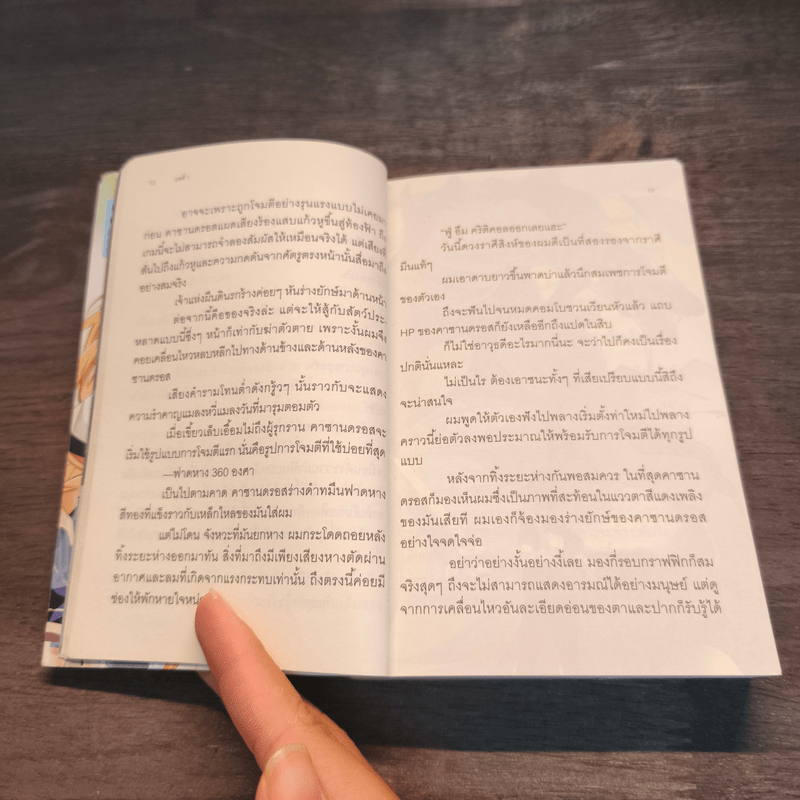 บทที่ 1
อาจจะเพราะถูกโจมตีอย่างรุนแรงแบบไม่เคย
ก่อน คาซานดรอสแผดเสียงร้องแสบแก้วหูขึ้นสู่ท้องฟ้า ถึง
เกมนี้จะไม่สามารถจำลองสัมผัสให้เหมือนจริงได้ แต่เสียงที่
สั่นไปถึงแก้วหูและความกดดันจากศัตรูตรงหน้านั้นสื่อมาถึง
อย่างสมจริง
เจ้าแห่งผืนดินรกร้างค่อยๆ หันร่างยักษ์มาด้านหน้า
ต่อจากนี้คือของจริงล่ะ แต่จะให้สู้กับสัตว์ประ-
หลาดแบบนี้ซึ่งๆ หน้าก็เท่ากับฆ่าตัวตาย เพราะงั้นผมจึง
คอยเคลื่อนไหวหลบหลีกไปทางด้านข้างและด้านหลังของคา
ซานดรอส
เสียงคำรามโทนต่ำดังกรู้วๆ นั้นราวกับจะแสดง
ความรำคาญแมลงหวี่แมลงวันที่มารุมตอมตัว
เมื่อเขี้ยวเล็บเอื้อมไม่ถึงผู้รุกราน คาซานดรอสจะ
เริ่มใช้รูปแบบการโจมตีแรก นั่นคือรูปการโจมตีที่ใช้บ่อยที่สุด
—ฟาดหาง 360 องศา
เป็นไปตามคาด คาซานดรอสร่างดำทมึนฟาดหาง
สีทองที่แข็งราวกับเหล็กไหลของมันใส่ผม
แต่ไม่โดน จังหวะที่มันยกหาง ผมกระโดดถอยหลัง
ทิ้งระยะห่างออกมาทัน สิ่งที่มาถึงมีเพียงเสียงหางตัดผ่าน
อากาศและลมที่เกิดจากแรงกระทบเท่านั้น ถึงตรงนี้ค่อยมี
ช่องให้พักหายใจ
"ฟู่ อืม คริติคอลออกเลยแฮะ"
วันนี้ดวงราศีสิงห์ของผมดีเป็นที่สองรองจากราศี
มีนแท้ๆ
ผมเอาดาบยาวขึ้นพาดบ่าแล้วนึกสมเพชการโจมตี
ของตัวเอง
ถึงจะฟันไปจนหมดคอมโบชวนเวียนหัวแล้ว แถบ
HP ของคาซานดรอสก็ยังเหลืออีกถึงแปดในสิบ
ก็ไม่ใช่อาวุธดีอะไรมากนี่นะ จะว่าไปก็คงเป็นเรื่อง
ปกตินั่นแหละ
ไม่เป็นไร ต้องเอาชนะทั้งๆ ที่เสียเปรียบแบบนี้สิถึง
จะน่าสนใจ
ผมพูดให้ตัวเองฟังไปพลางเริ่มตั้งท่าใหม่ไปพลาง
คราวนี้ย่อตัวลงพอประมาณให้พร้อมรับการโจมตีได้ทุกรูป
แบบ
หลังจากทิ้งระยะห่างกันพอสมควร ในที่สุดคาซาน
ดรอสก็มองเห็นผมซึ่งเป็นภาพที่สะท้อนในแววตาสีแดงเพลิง
ของมันเสียที ผมเองก็จ้องมองร่างยักษ์ของคาซานดรอส
อย่างใจจดใจจ่อ
อย่าว่าอย่างงั้นอย่างงี้เลย มองกี่รอบกราฟฟิกก็สม
จริงสุดๆ ถึงจะไม่สามารถแสดงอารมณ์ได้อย่างมนุษย์ แต่ดู
จากการเคลื่อนไหวอันละเอียดอ่อนของตาและปากก็รับรู้ได้